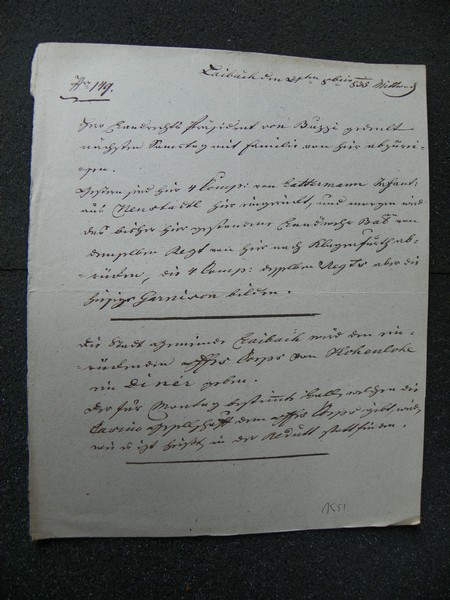 Laibach den 21ten 8ber 835 Mittwoch
No. 149.
Der Landrechts Präsident von Buzzi gedenkt
nächsten Samstag mit Familie von hier abzurei-
sen.
Gestern sind hier 4 Comp: von Lattermann Infant:
aus Neustadtl hier eingerückt, und morgen wird
das bisher hier gestandene Landwehr Baon von
demselben Regt von hier nach Klagenfurth ab-
rücken, die 4 Comp: desselben Regts aber die
hiesige Garnison bilden.
Die Stadt Gemeinde Laibach wird dem ein-
rückenden Offrs Corps von Hohenlohe
ein Diner geben.
Der für Montag bestimmte Ball, welchen die
Casino Gesellschaft dem Offrs Corps gibt, wird,
wie es ist heißt, in der Redutt stattfinden.
1851